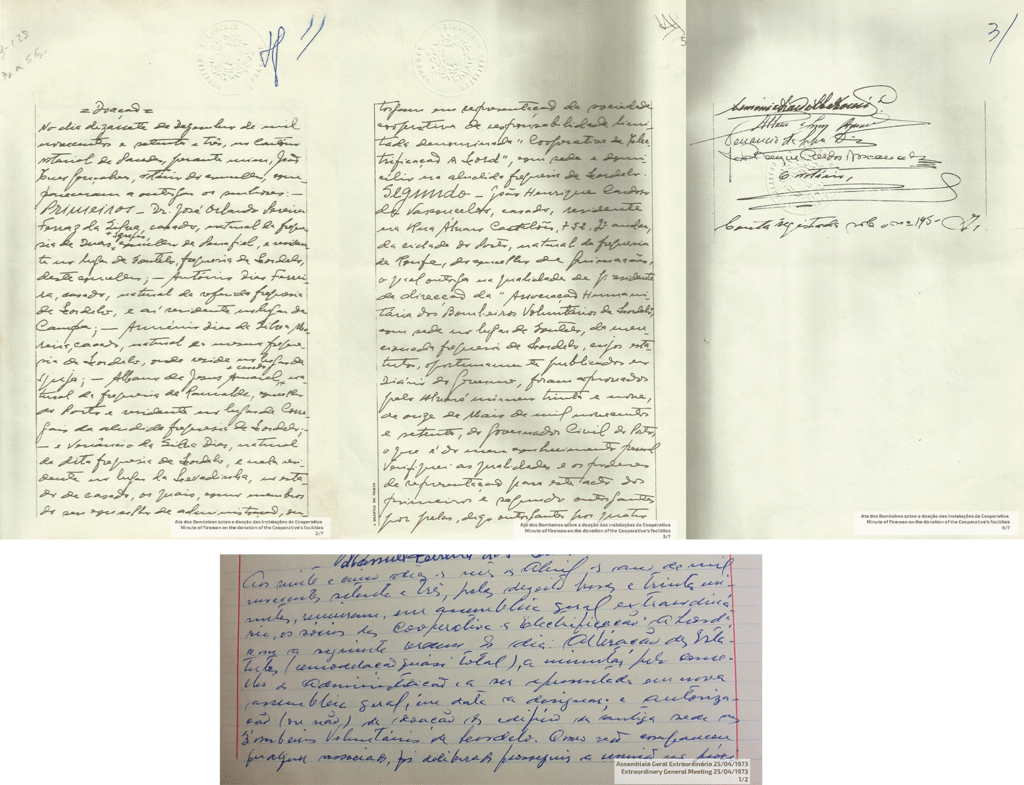 = Doação =
No dia dezassete de Dezembro de mil
novecentos e setenta e três, no cartório
notarial de Paredes, perante mim, João
notário do concelho, com-
pareceram a outorgar os senhores:
Primeiros – Dr. José Orlando Pereira
Ferraz da Silva, casado, natural da fregue-
sia de Duas Igrejas, concelho de Penafiel, e residen-
te no lugar de Soutelo, freguesia de Lordelo,
deste concelho; – António Dias Ferrei-
ra, casado, natural da referida freguesia
de Lordelo, e aí residente no lugar de
Campa; – Arménio Dias da Silva Mo-
reira, casado, natural da mesma fregue-
sia de Lordelo, onde reside no lugar de
; – Albano de Jesus Amaral, casado, na-
tural da freguesia de Ramalde, concelho
do Porto e residente no lugar de
da aludida freguesia de Lordelo;
– e Venâncio da Silva Dias, natural
da dita freguesia de Lordelo, e nela resi-
dente no lugar da Levadinha, no esta-
do de casado, os quais, como membros
do seu conselho de administração, ou
Ata dos Bombeiros sobre a doação das instalações da Cooperativa
Minute of Firemen on the donation of the Cooperative's facilities
2/7
torgam em representação da sociedade
cooperativa de responsabilidade limi-
tada denominada "Cooperativa de Elec-
trificação A Lord", com sede e domi-
cílio na aludida freguesia de Lordelo.
Segundo – João Henrique Cardoso
de Vasconcelos, casado, residente
na Rua Álvaro Castelões, 732, 2º andar,
da cidade do Porto, natural da freguesia
de Ronfe, do concelho de Guimarães,
o qual outorga na qualidade de Presidente
da direcção da "Associação Humani-
tária dos Bombeiros Voluntários de Lordelo,
com sede no lugar de Soutelo, da men-
cionada freguesia de Lordelo, cujos esta-
tutos, oportunamente publicados no
Diário do Governo, foram aprovados
pelo Alvará número trinta e nove,
de onze de Maio de mil novecentos
e setenta, do Governador Civil do Porto,
o que é do meu conhecimento pessoal
Verifiquei as qualidades e os poderes
de representação para este acto dos
primeiros e segundo outorgantes
por pelas, digo outorgantes por quatro
Ata dos Bombeiros sobre a doação das instalações da Cooperativa
Minute of Firemen on the donation of the Cooperative's facilities
3/7
3/
Venancio da Silva Dias
O notário,
Conta registada sob o nº 195
Ata dos Bombeiros sobre a doação das instalações da Cooperativa
Minute of Firemen on the donation of the Cooperative's facilities
Aos vinte e cinco dias do mês de Abril do ano de mil
novecentos setenta e três, pelas dezoito horas e trinta mi-
nutos, reuniram, em assembleia geral extraordiná-
ria, os sócios da Cooperativa de Electrificação A Lord
com a seguinte ordem do dia: Alteração dos Esta-
tutos (remodelação quase total), a minutar pelo conse-
lho de Administração e a ser apresentada em nova
assembleia geral, em data a designar; e autoriza-
ção (ou não) da doação do edifício da antiga sede aos
Bombeiros Voluntários de Lordelo. Como não comparecem
qualquer associado, foi deliberado prosseguir a reunião na
Assembleia Geral Extraordinária 25/04/1973
Extraordinary General Meeting 25/04/1973
1/2